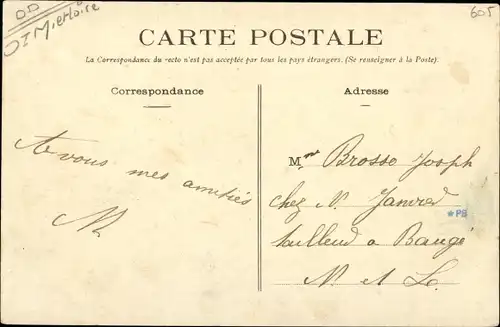 DD
605
CARTE POSTALE
La Correspondance du recto n'est pas acceptée par tous les pays étrangers. (Se renseigner à la Poste).
Correspondance
Adresse
A vous mes amitiés
M
Mme Brosse Joseph
chez M. Janvred
tailleur a Baugé
M et L.
*PB